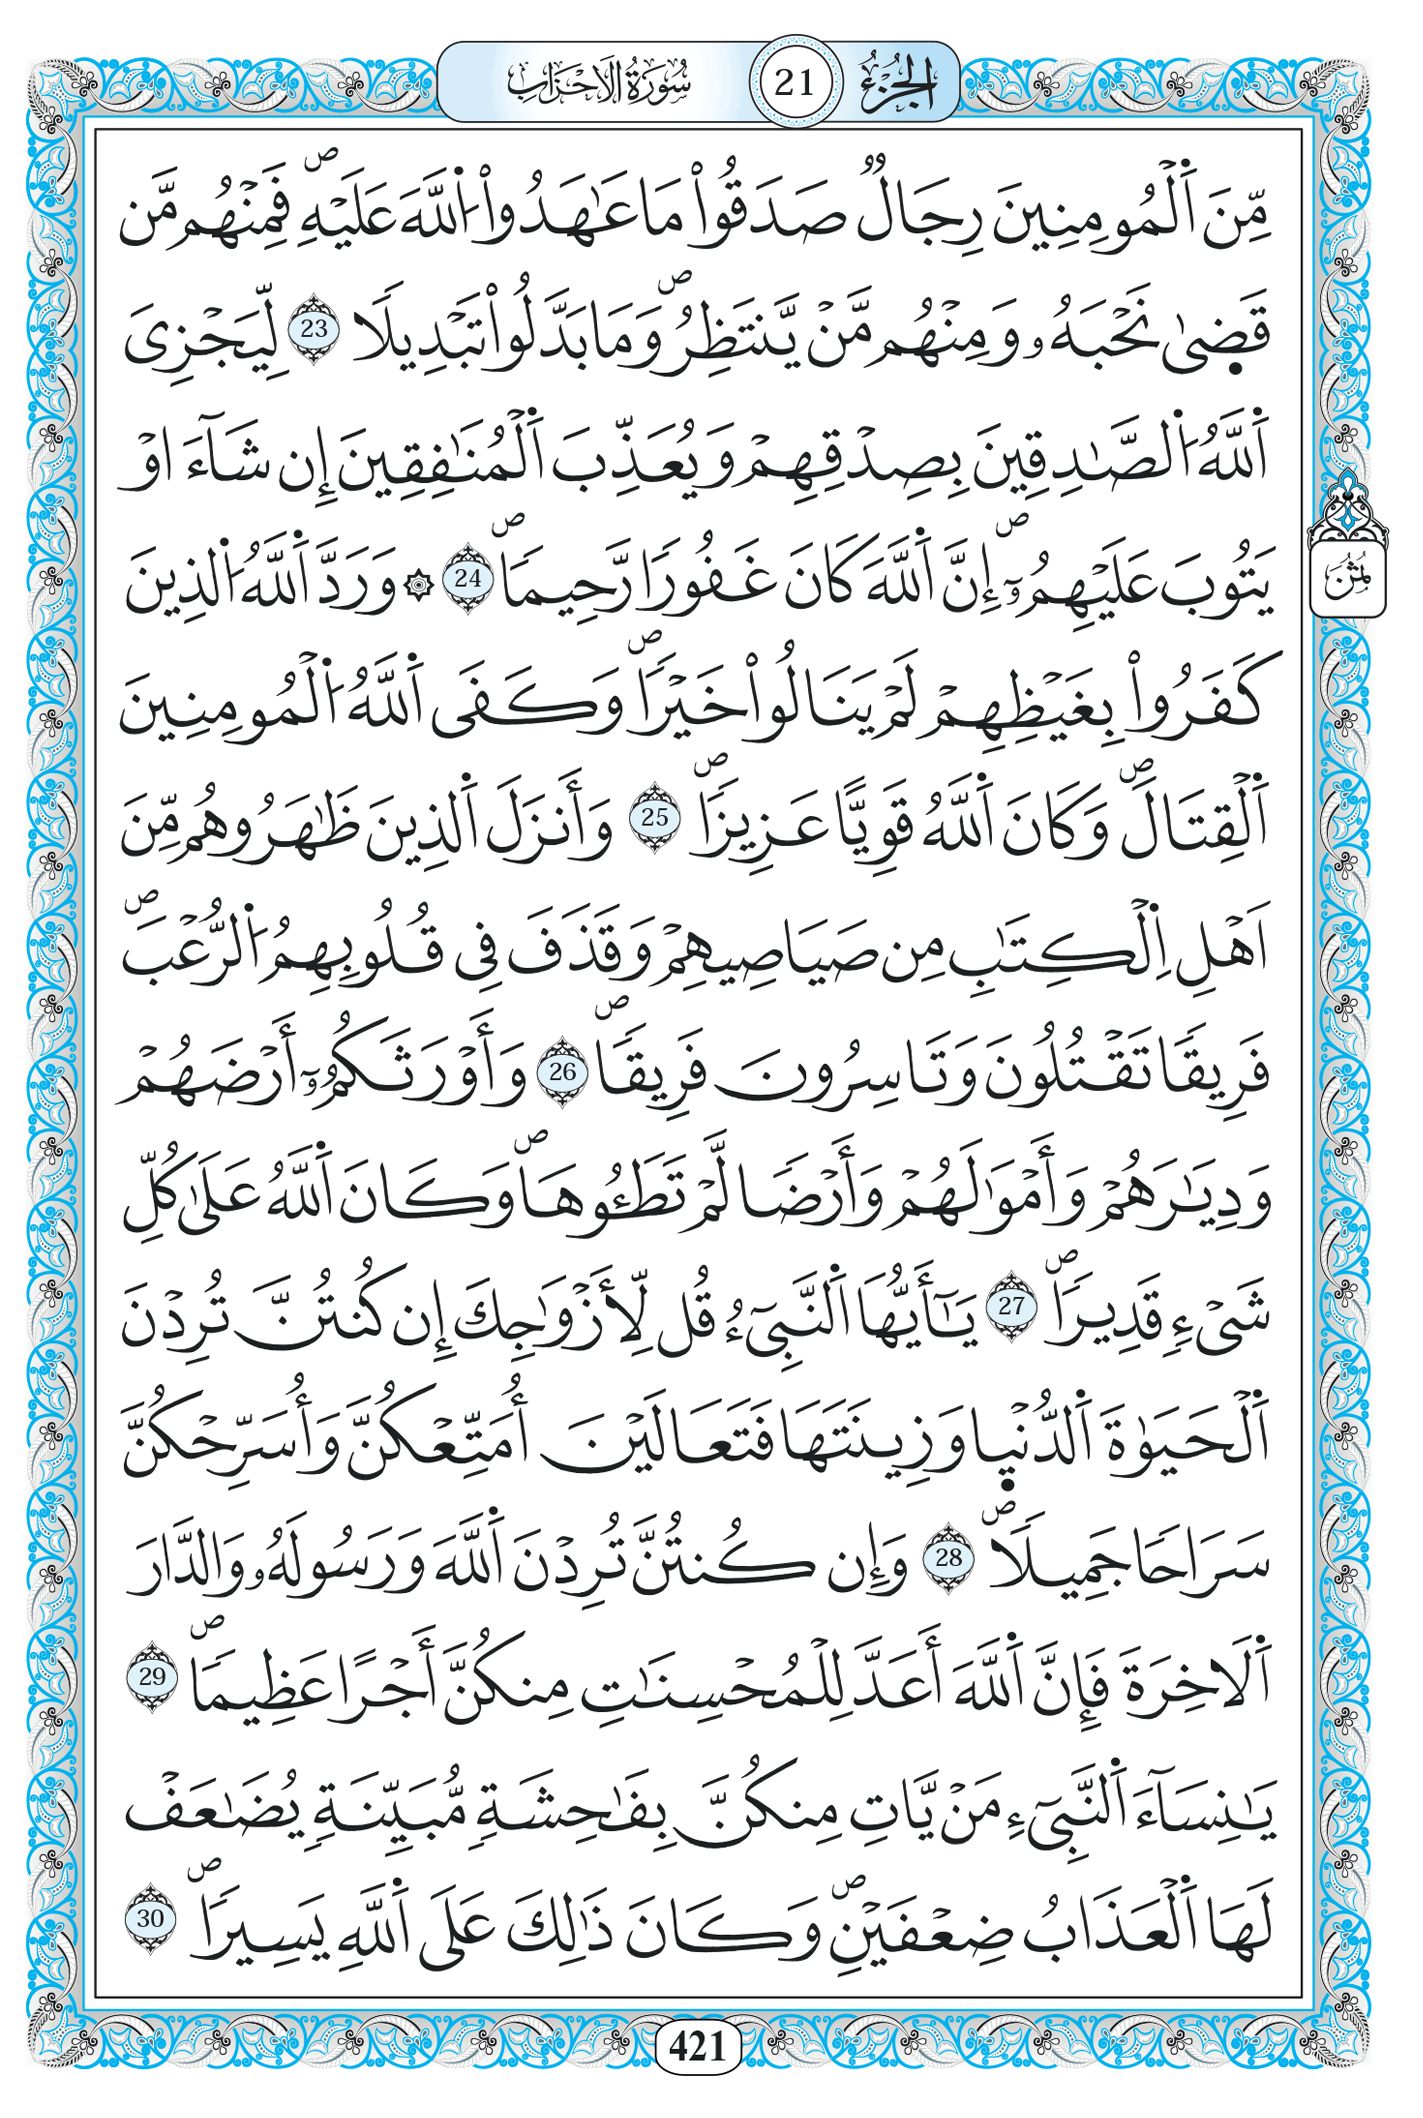 الجزء 21 سورة الاحزاب
مِّنَ اَ۬لْمُومِنِينَ رِجَالٞ صَدَقُواْ مَا عَٰهَدُواْ اُ۬للَّهَ عَلَيْهِۖ فَمِنْهُم مَّن
قَض۪ىٰ نَحْبَهُۥ وَمِنْهُم مَّنْ يَّنتَظِرُۖ وَمَا بَدَّلُواْ تَبْدِيلاٗ 23 لِّيَجْزِيَ
اَ۬للَّهُ اُ۬لصَّٰدِقِينَ بِصِدْقِهِمْ وَيُعَذِّبَ اَ۬لْمُنَٰفِقِينَ إِن شَآءَ اَوْ
يَتُوبَ عَلَيْهِمُۥٓۖ إِنَّ اَ۬للَّهَ كَانَ غَفُوراٗ رَّحِيماٗۖ 24 ۞ وَرَدَّ اَ۬للَّهُ اُ۬لذِينَ
كَفَرُواْ بِغَيْظِهِمْ لَمْ يَنَالُواْ خَيْراٗۖ وَكَفَى اَ۬للَّهُ اُ۬لْمُومِنِينَ
اَ۬لْقِتَالَۖ وَكَانَ اَ۬للَّهُ قَوِيّاً عَزِيزاٗۖ 25 وَأَنزَلَ اَ۬لذِينَ ظَٰهَرُوهُم مِّنَ
اَهْلِ اِ۬لْكِتَٰبِ مِن صَيَاصِيهِمْ وَقَذَفَ فِي قُلُوبِهِمُ اُ۬لرُّعْبَۖ
فَرِيقاٗ تَقْتُلُونَ وَتَاسِرُونَ فَرِيقاٗۖ 26 وَأَوْرَثَكُمُۥٓ أَرْضَهُمْ
وَدِيَٰرَهُمْ وَأَمْوَٰلَهُمْ وَأَرْضاٗ لَّمْ تَطَـُٔوهَاۖ وَكَانَ اَ۬للَّهُ عَلَىٰ كُلِّ
شَيْءٖ قَدِيراٗۖ 27 يَٰٓأَيُّهَا اَ۬لنَّبِيٓءُ قُل لِّأَزْوَٰجِكَ إِن كُنتُنَّ تُرِدْنَ
اَ۬لْحَيَوٰةَ اَ۬لدُّنْي۪ا وَزِينَتَهَا فَتَعَالَيْنَ أُمَتِّعْكُنَّ وَأُسَرِّحْكُنَّ
سَرَاحاٗ جَمِيلاٗۖ 28 وَإِن كُنتُنَّ تُرِدْنَ اَ۬للَّهَ وَرَسُولَهُۥ وَالدَّارَ
اَ۬لَاخِرَةَ فَإِنَّ اَ۬للَّهَ أَعَدَّ لِلْمُحْسِنَٰتِ مِنكُنَّ أَجْراً عَظِيماٗۖ 29
يَٰنِسَآءَ اَ۬لنَّبِيٓءِ مَنْ يَّاتِ مِنكُنَّ بِفَٰحِشَةٖ مُّبَيِّنَةٖ يُضَٰعَفْ
لَهَا اَ۬لْعَذَابُ ضِعْفَيْنِۖ وَكَانَ ذَٰلِكَ عَلَى اَ۬للَّهِ يَسِيراٗۖ 30
ثمن
421